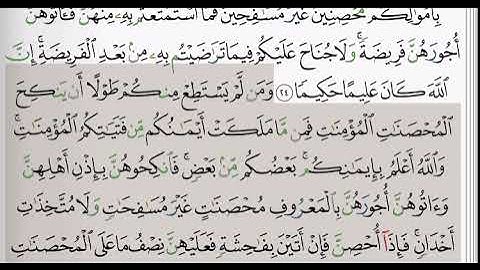 بِأَمْوَٰلِكُم مُّحْصِنِينَ غَيْرَ مُسَٰفِحِينَ ۚ فَمَا ٱسْتَمْتَعْتُم بِهِۦ مِنْهُنَّ فَـَٔاتُوهُنَّ
أُجُورَهُنَّ فَرِيضَةً ۚ وَلَا جُنَاحَ عَلَيْكُمْ فِيمَا تَرَٰضَيْتُم بِهِۦ مِنۢ بَعْدِ ٱلْفَرِيضَةِ ۚ إِنَّ
ٱللَّهَ كَانَ عَلِيمًا حَكِيمًا ٢٤ وَمَن لَّمْ يَسْتَطِعْ مِنكُمْ طَوْلًا أَن يَنكِحَ
ٱلْمُحْصَنَٰتِ ٱلْمُؤْمِنَٰتِ فَمِن مَّا مَلَكَتْ أَيْمَٰنُكُم مِّن فَتَيَٰتِكُمُ ٱلْمُؤْمِنَٰتِ ۚ
وَٱللَّهُ أَعْلَمُ بِإِيمَٰنِكُم ۚ بَعْضُكُم مِّنۢ بَعْضٍ ۚ فَٱنكِحُوهُنَّ بِإِذْنِ أَهْلِهِنَّ
وَءَاتُوهُنَّ أُجُورَهُنَّ بِٱلْمَعْرُوفِ مُحْصَنَٰتٍ غَيْرَ مُسَٰفِحَٰتٍ وَلَا مُتَّخِذَٰتِ
أَخْدَانٍ ۚ فَإِذَآ أُحْصِنَّ فَإِنْ أَتَيْنَ بِفَٰحِشَةٍ فَعَلَيْهِنَّ نِصْفُ مَا عَلَى ٱلْمُحْصَنَٰتِ